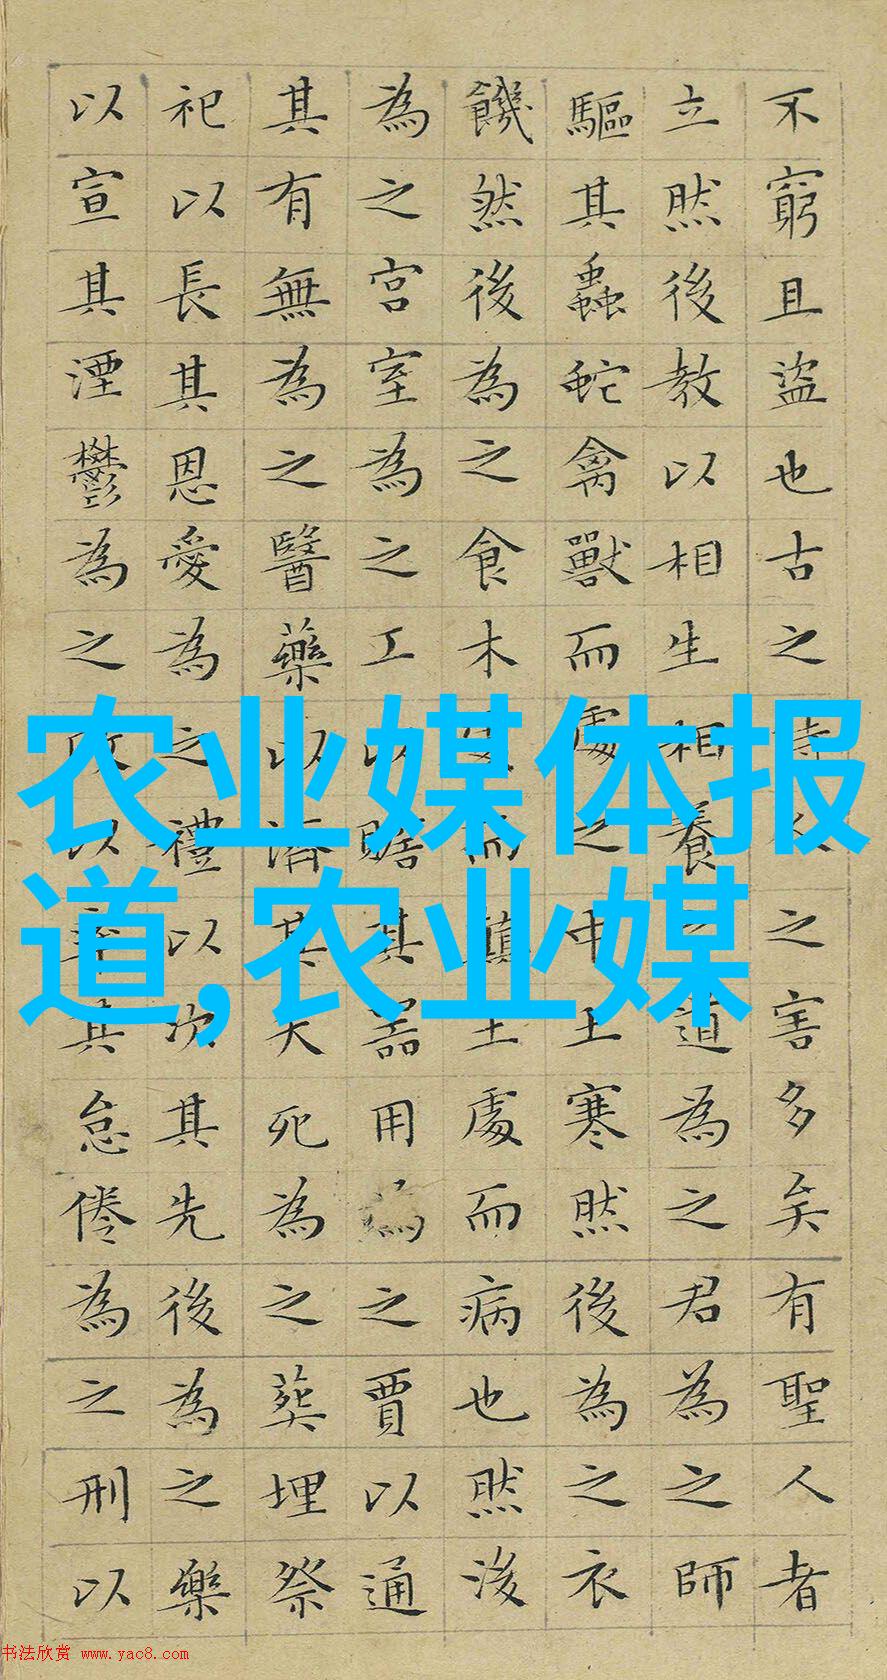 不窮且盜也古之時人之害多矣有聖人者
立然後教以相生相養之道為之君為之師
驅其蟲蛇禽獸而處之中土寒然後為之衣
饑然後為之食木處而顛土處而病也然後
為之宮室為之工以贍其器用為之賈以通
其有無為之醫藥以濟其夭死為之葬埋祭
祀以長其恩愛為之禮以次其先後為之樂
以宣其湮鬱為之政以率其怠倦為之刑以
农业媒体报
道,农业媒
书法欣赏 www.yac8.com